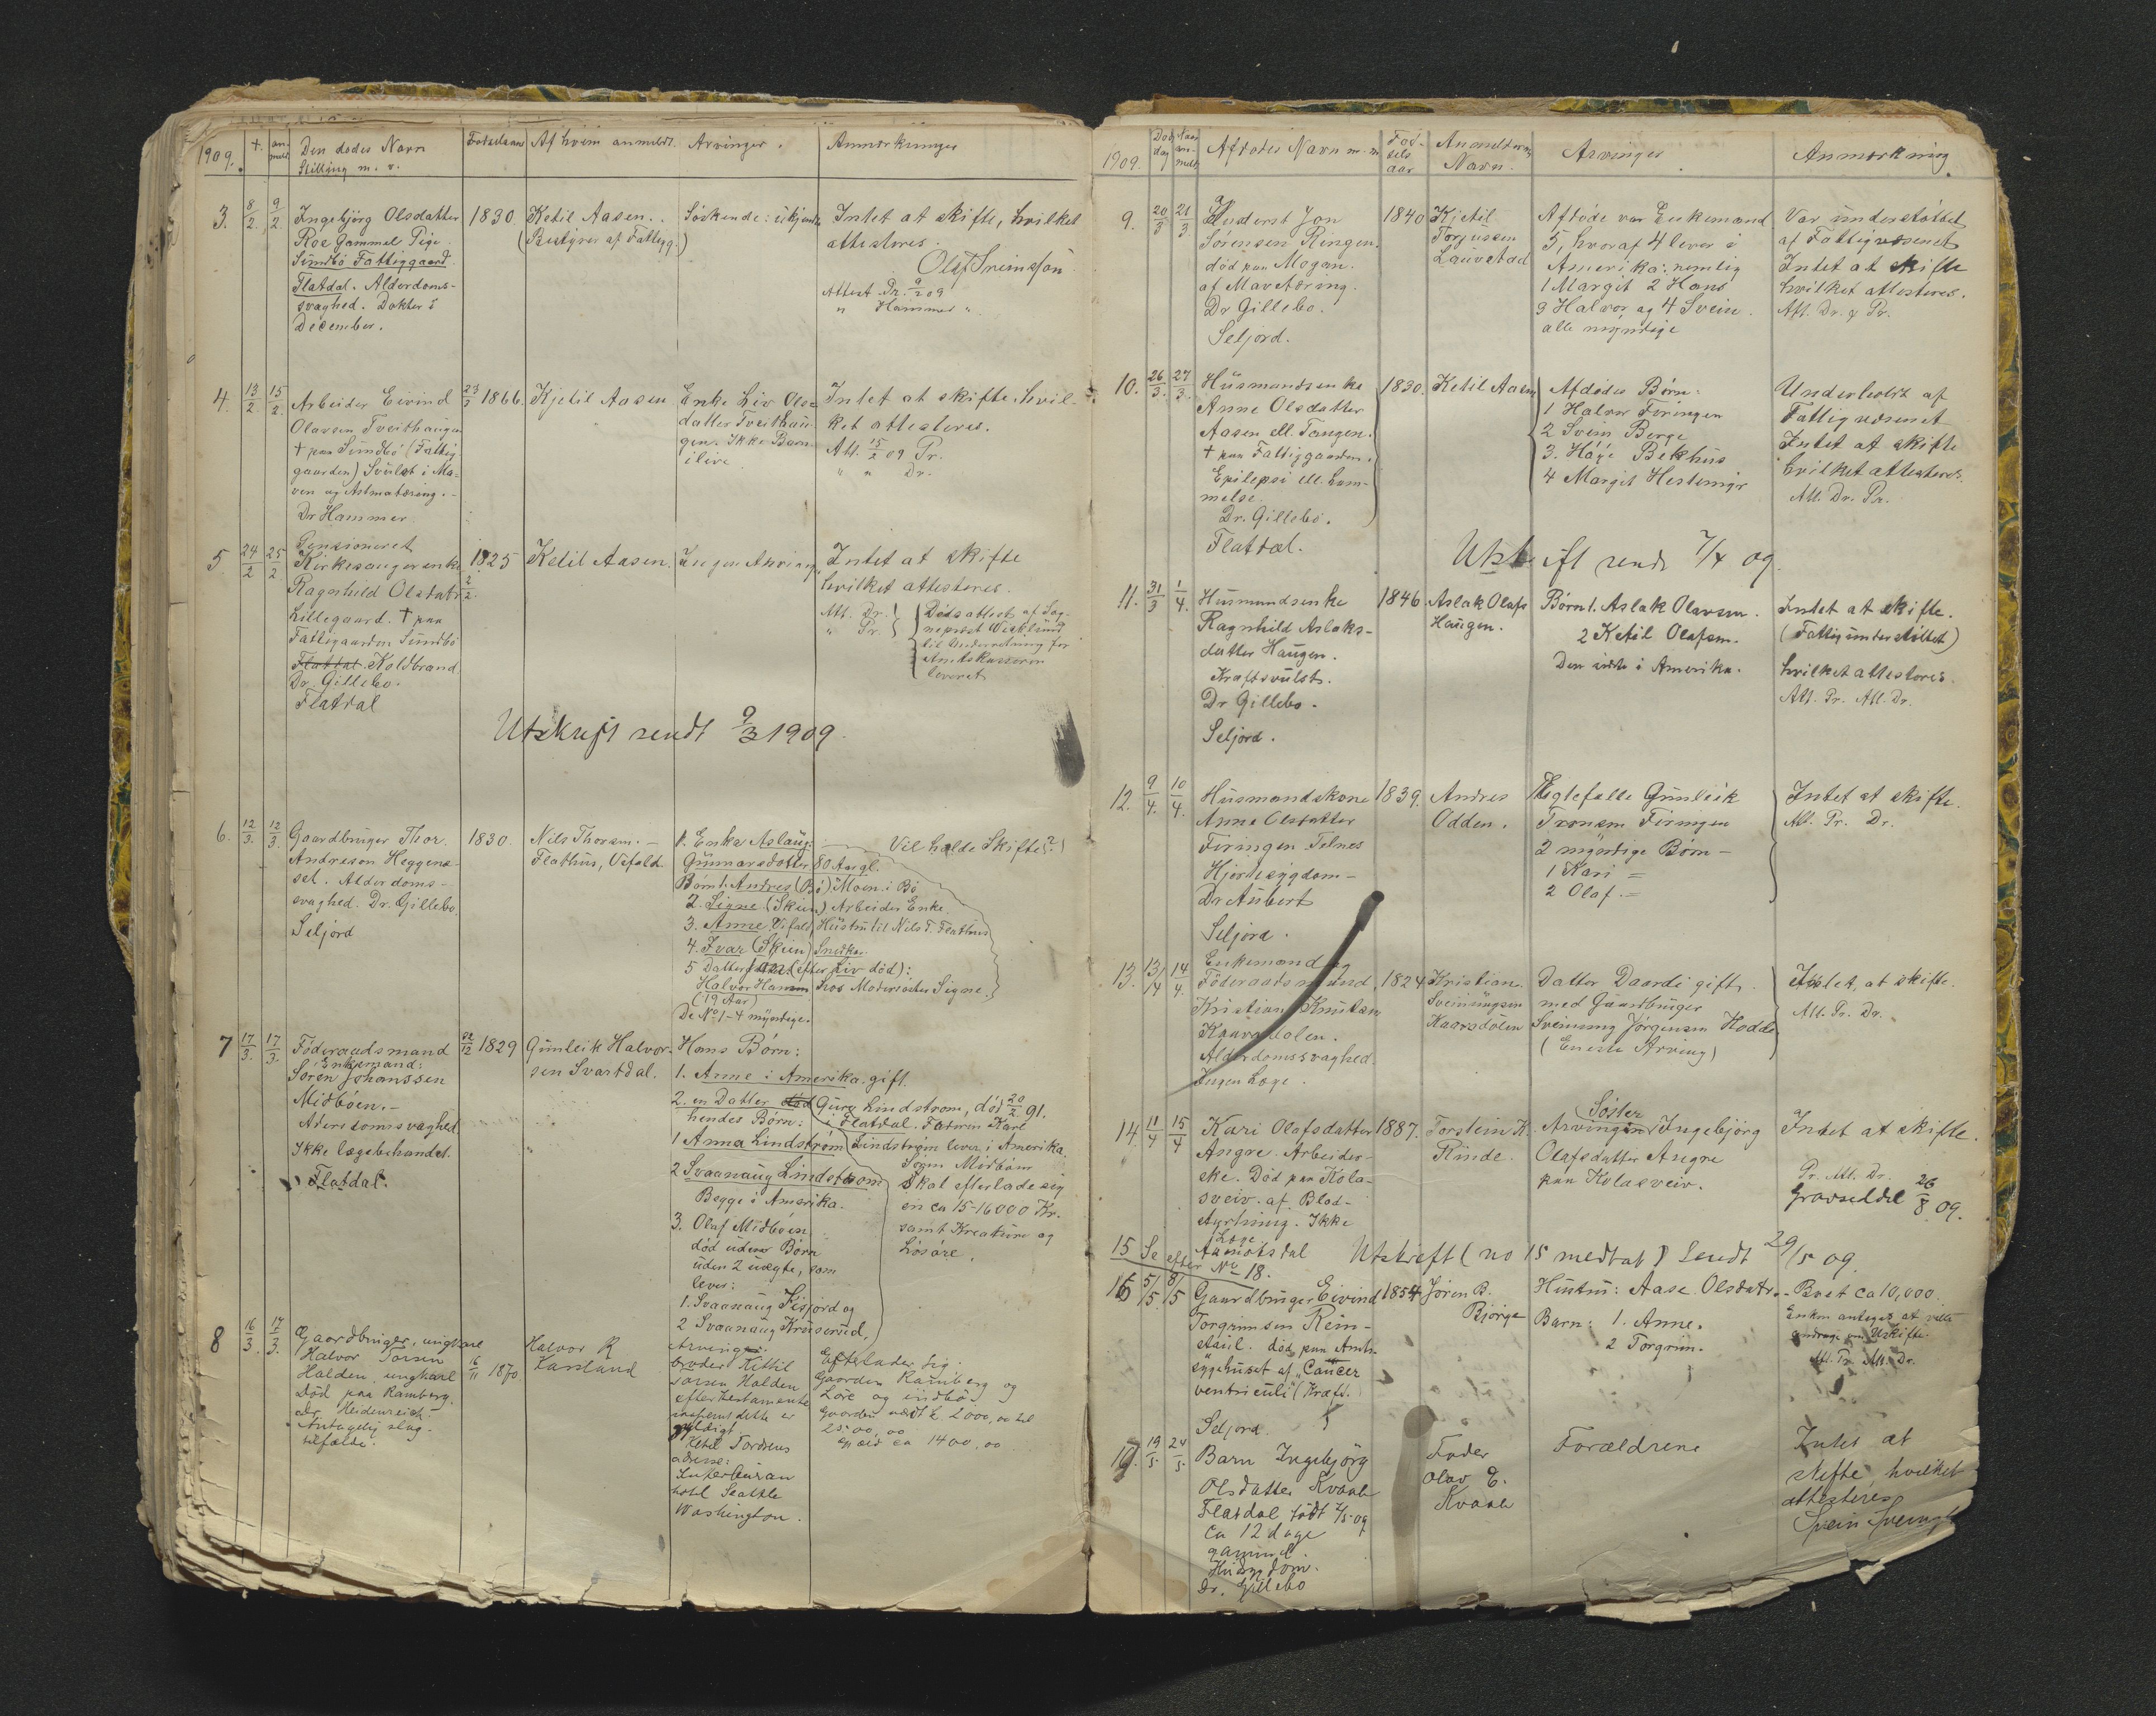 1909.
†.
an-
meldt
Den dødes Navn
Stilling m. v.
Fødselsaar
Af hvem anmeldt
Arvinger.
Anmærkninger
3.
8/2.
9/2.
Ingebjörg Olsdatter
Roe gammel Pige.
Sundbö Fattiggaard.
Flatdal. Alderdoms-
svaghed. Dokter i
December.
1830.
Ketil Aasen.
(Bestyrer af Fattigg.)
Söskende: ukjendte
Intet at skifte, hvilket
attesteres.
Olaf Sveinsson
Attest Pr. 9/2 09
" Hammer "
4.
13/2.
15/2.
Arbeider Eivind
Olavsen Tveithaugen
† paa Sundbö (Fattig-
gaarden) Svulst i Ma-
ven og Astmatæring. -
Dr Hammer
23/3 1866.
Kjetil Aasen
Enke Liv Ols-
datter Tveithau-
gen. Ikke Barn
ilive
Intet at skifte hvil-
ket attesteres.
Att. 15/2 09 Pr.
" " Dr.
5
24/2
25/2
Pensioneret
Kirkesangerenke
Ragnhild Olsdatr
Lillegaard. † paa
Fattigaarden Sundbö
Flatdal. Koldbrand
Dr. Gillebo.
Flatdal
1825
2/2.
Ketil Aasen.
Ingen Arving.
Intet at skifte
hvilket attesteres.
Att. Dr.
" Pr.
Dödsattest af Sog-
neprest Wisklund
til Underretning for
Amtskasseren
leveret
Utskrift sendt 9/3 1909.
6.
12/3.
12/3.
Gaardbruger Thor
Andreson Heggenæ-
set. Alderdoms-
svaghed. Dr. Gillebo.
Seljord
1830.
Nils Thorsen. -
Flathus, Vefald
1. Enke Aslaug
Gunnarsdotter 80 Aar gl.
Børn 1. Andres (Bö) Moen i Bö
2. Signe (Skien) Arbeider Enke.
3. Anne Vifald Hustru til Nils T. Flathus
4. Ivar (Skien) Snedker.
5 Datter (efter Liv död):
Halvor Hansen hos Modersöster Signe.
(19 Aar)
De No 1-4 myndige.
Vil holde Skifte(?)
7
17/3.
17/3.
Föderaadsmand
Enkemand:
Sören Johanssen
Midböen. -
Alderdomssvaghed.
Ikke lægebehandlet.
Flatdal.
22/12 1829
Gunleik Halvor-
sen Svartdal.
Hans Børn:
1. Anne i Amerika. gift.
2. en Datter död Guro Lindstrom, död 20/2 91.
hendes Børn: i Flatdal. Faderen Karl
1 Anna Lindström Lindström lever i Amerika.
2 Svaanaug Lindstrom
Begge i Amerika.
3. Olaf Midböen
död uden Børn
uden 2 uægte, som
lever:
1. Svaanaug Kisjord og
2 Svaanaug Kruserud,
Sören Midböen
Skal efterlade sig
en ca 15-16000 Kr.
samt Kreaturer og
Lösöre.
8
16/3.
17/3.
Gaardbruger, ungkare
Halvor Torsen
Halden, ungkarl
Död paa Ramberg.
Dr Heidenreich
Antagelig slag-
tilfælde.
16/11 1870
Halvor R
Kassland
Arvinger:
broder Kittil
Torsen Halden
efter testamente
ifald dette er
gyldigt.
Ketil Tordsens
adresse:
Interurban
hotel Seattle
Washington.
Efterlader sig.
Gaarden Ramberg og
Löre og indbo
Gaarden værdt k. 2000,00 til
2500,00
Gjæld ca 1400,00
1909.
Döds
dag
Naar
an-
meldt
Afdödes Navn m. m
Föd-
sels
aar
Anmelderens
Navn.
Arvinger.
Anmærkning.
9.
20/3
21/3.
Husderet Jon
Sörensen Ringen.
död paa Mogan.
af Mavetæring.
Dr Gillebo.
Seljord.
1840
Kjetil
Torjussen
Lauvstad
Afdöde var Enkemand
5, hvoraf 4 lever i
Amerika: nemlig
1 Margit 2 Hans
3 Halvor og 4 Svein.
alle myndige
Var understöttet
af Fattigvæsenet
Intet at skifte
hvilket attesteres.
Att. Dr. & Pr.
10.
26/3.
27/3.
Husmandsenke
Anne Olsdatter
Aasen ell. Tangen.
† paa Fattiggaarden.
Epilepsi ell. Lam-
melse.
Dr. Gillebo.
Flatdal.
1830.
Ketil Aasen
Afdödes Børn:
1 Halvor Firingen
2 Svein Berge
3. Håge Bekhus
4 Margit Hestemyr
Underholdt af
Fattigvæsenet
Intet at skifte
hvilket attesteres.
Att. Dr. Pr.
Utskrift sendt 7/4 09.
11.
31/3
1/4.
Husmandsenke
Ragnhild Aslaks-
datter Haugen.
Kræftsvulst.
Dr Gillebo.
Seljord.
1846.
Aslak Olafs
Haugen.
Børn 1. Aslak Olavsen.
2 Ketil Olafsen.
Den sidste i Amerika.
Intet at skifte.
(Fattigunderstöttet)
hvilket attesteres.
Att. Pr. Att. Dr.
12.
9/4.
10/4.
Husmandskone
Anne Olsdatter
Firingen Telnes
Hjertesygdom -
Dr Aubert
Seljord.
1839.
Andres
Odden.
Ægtefælle Gunleik
Tronsen Firingen
2 myndige Børn -
1 Kari =
2 Olaf. =
Intet at skifte.
Att. Pr. Dr.
13.
13/4
14/4.
Enkemand og
Föderaadsmand
Kristian Knutsen
Kaarsdalen.
Alderdomssvaghed.
Ingen Læge.
1824
Kristian
Sveinungsen
Kaarsdalen
Datter Daardi gift.
med Gaardbruger
Sveinung Jørgensen Hodde
(Eneste Arving)
Intet, at skifte.
Att. Pr. Dr.
14.
11/4
15/4
Kari Olafsdatter
Angre. Arbeider-
ske. Död paa Kola-
sveiv. af Blod-
styrtning. Ikke
Læge
Aamotsdal
1887.
Torstein K.
Rinde.
Söster
Arvingen Ingebjörg
Olafsdatter Angre
paa Kolasveiv.
Intet at skifte.
Pr. Att. Dr.
Gravseddel 26/8 09.
15 Se efter No 18.
Utskrift (no 15 medtat) Sendt 29/5 09.
16
5/5.
8/5
Gaardbruger Eivind
Torgrimsen Rein-
staul. död paa Amts-
sygehuset af "Cancer
ventriculi" (Kræft.
Seljord.
1854
Jören B.
Bjorge
Hustru: Aase Olsdatr.
Barn: 1. Anne.
2 Torgrim.
Boet ca 10,000.
Enken antages at ville
andrage om Uskifte.
Att. Pr. Att. Dr.
17.
19/5.
24/5.
Barn Ingebjörg
Olsdatter Kvaale
Flatdal födt 7/5 09
Ca 12 dage
gammel.
Dr. Gillebo
Fader
Olav E.
Kvaale
Forældrene
Intet at
skifte, hvilket
attesteres